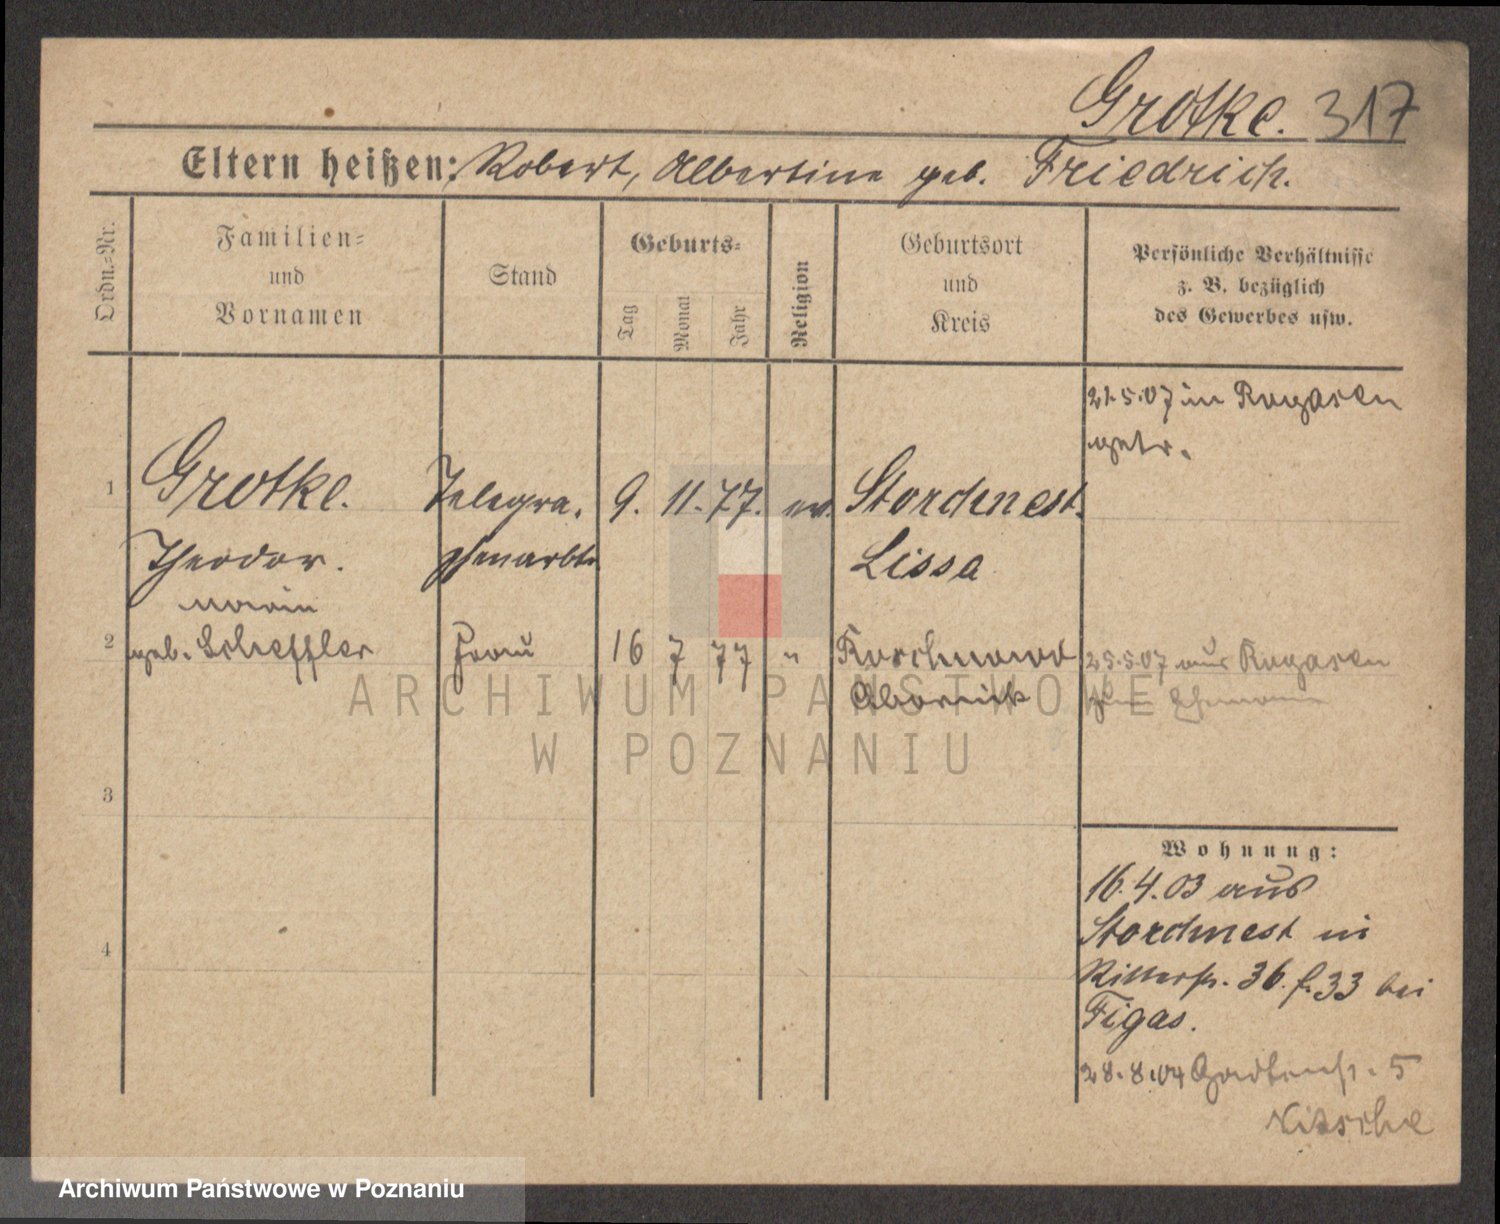 Grotke. 317
Eltern heißen: Robert, Albertine geb. Friedrich.
Ordn.-Nr.
Familien-
und
Vornamen
Stand
Geburts-
Tag
Monat
Jahr
Religion
Geburtsort
und
Kreis
Persönliche Verhältnisse
z. B. bezüglich
des Gewerbes usw.
21.5.07 in Rogasen
getr.
1 Grotke. Telegra- 9. 11. 77. ev. Storchnest.
Theodor. phenarbtr Lissa
Maria
2 geb. Scheffler Frau 16 7 77 " 25.5.07 aus Rogasen
Obornik zum Ehemann
ARCHIWUM PAŃSTWOWE
W POZNANIU
3
4
Wohnung:
16.4.03 aus
Storchnest in
Ritterstr. 36. f. 33 bei
Figas.
28.8.04 Gartenstr. 5
Nitsche
Archiwum Państwowe w Poznaniu